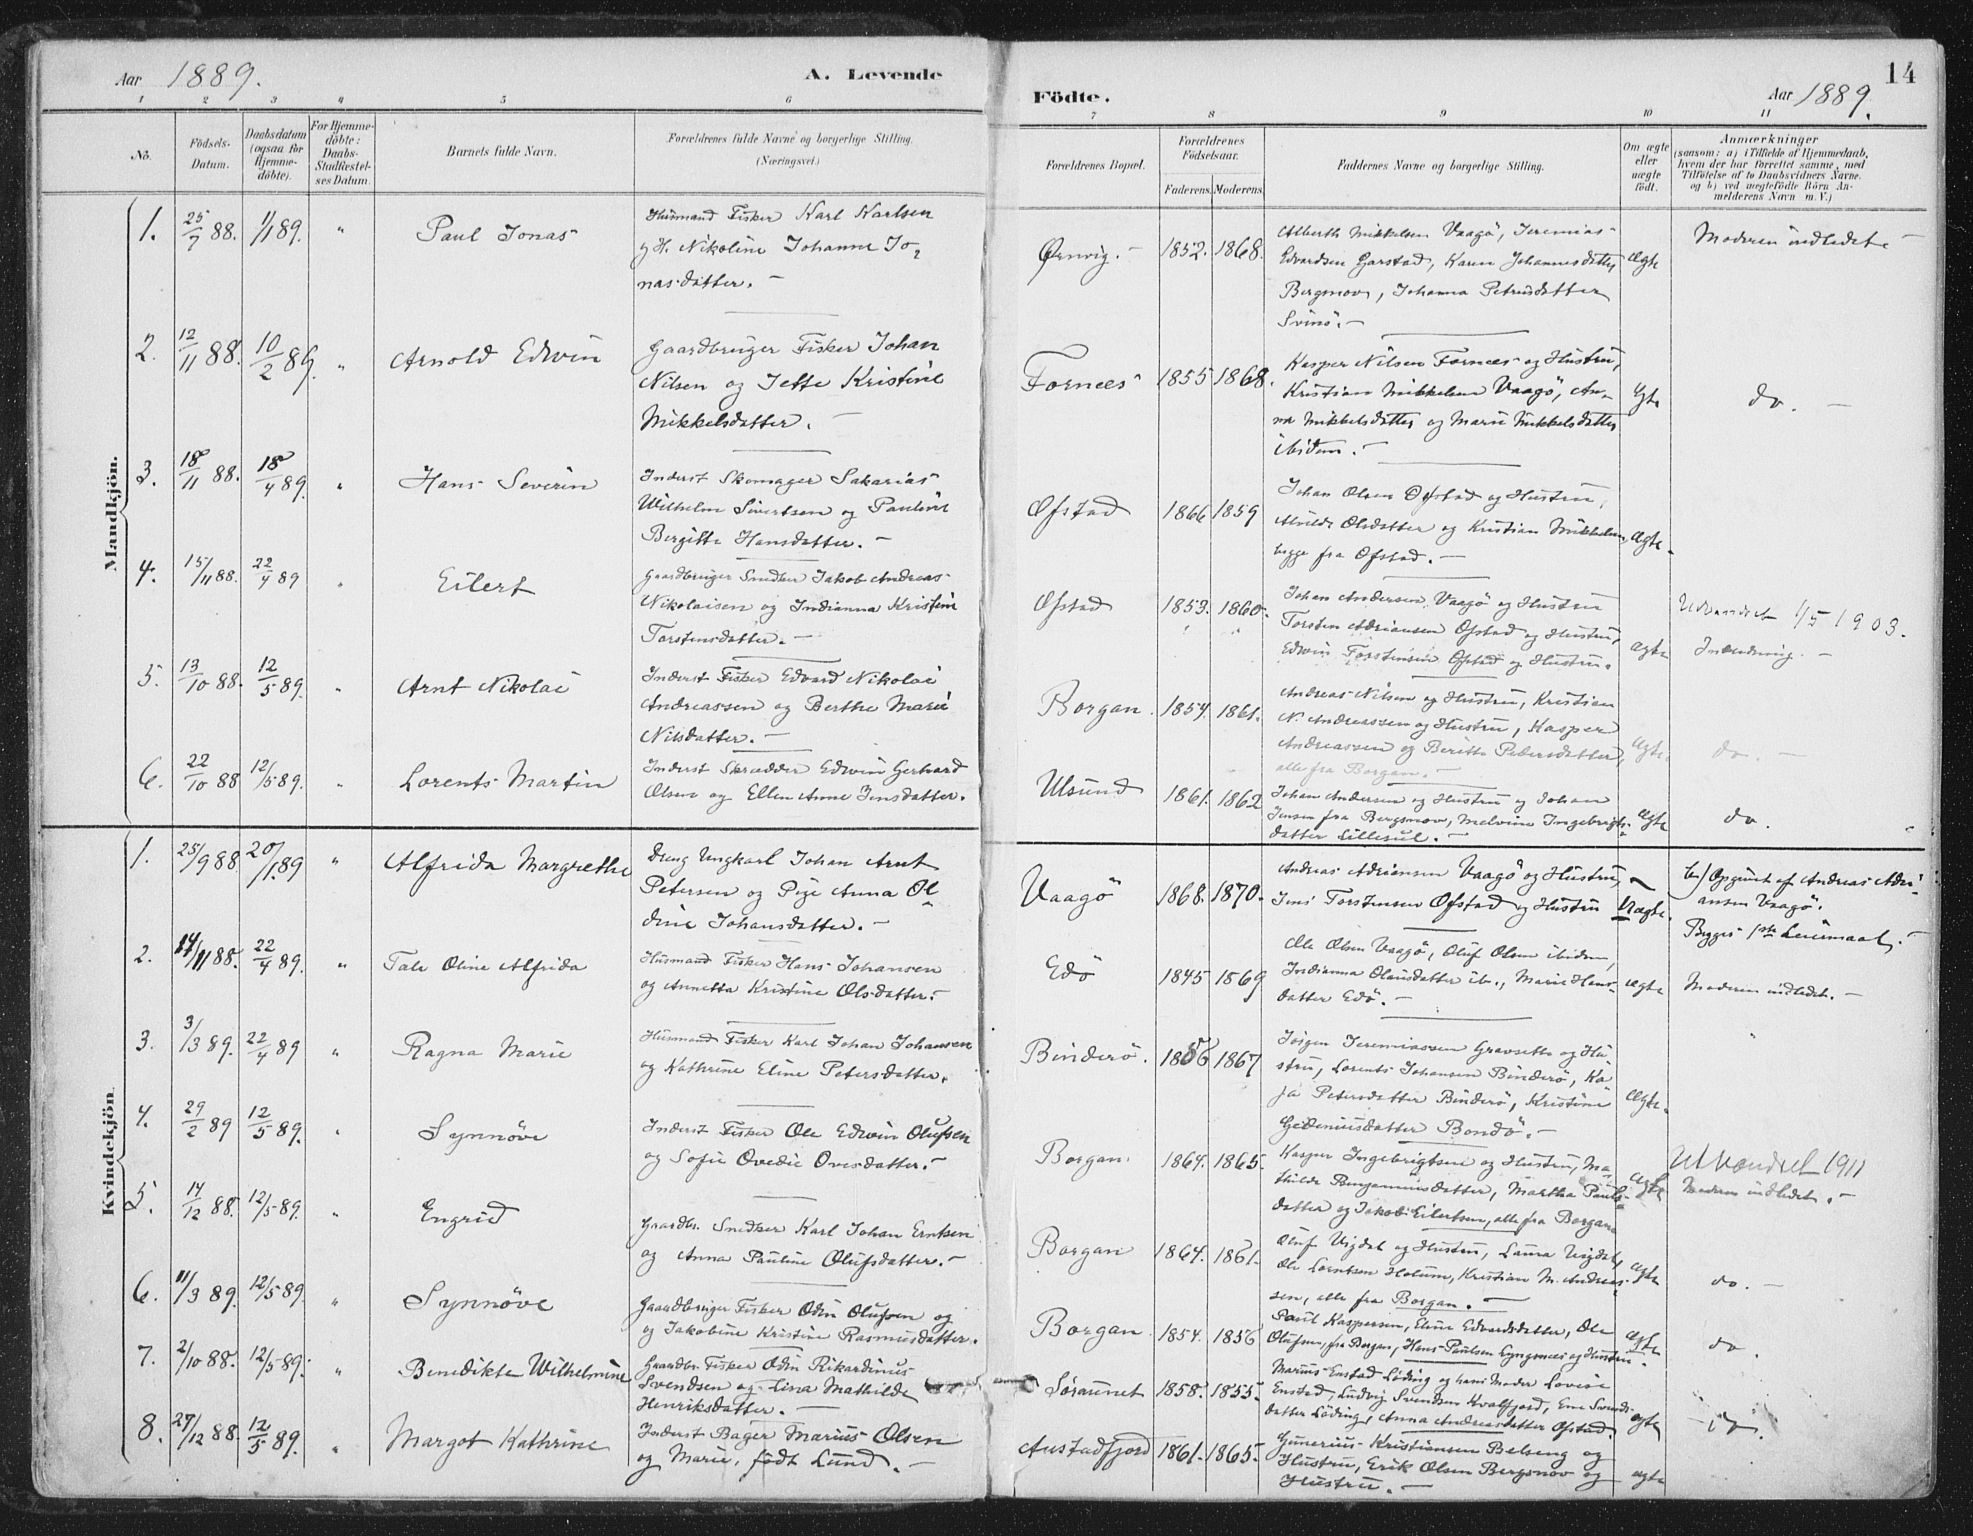 Aar 1889.
A. Levende
Födte.
Aar 1889.
14
1 2 3 4 5 6 7 8 9 10 11
No.
Födsels-
Datum.
Daabsdatum
(ogsaa for
Hjemme-
döbte).
For Hjemme-
döbte:
Daabs-
Stadfæstel-
ses Datum.
Barnets fulde Navn.
Forældrenes fulde Navne og borgerlige Stilling.
(Næringsvei.)
Forældrenes Bopæl.
Forældrenes
Födselsaar.
Faderens. Moderens.
Faddernes Navne og borgerlige Stilling.
Om ægte
eller
uægte
födt.
Anmærkninger
(saasom: a) i Tilfælde af Hjemmedaab,
hvem der har forrettet samme, med
Tilföielse af to Daabsvidners Navne.
og b) ved uægtefödte Börn An-
melderens Navn m. V.)
Mandkjön.
1. 25/7 88. 1/1 89. " Paul Jonas
Husmand Fisker Karl Karlsen
og H. Nikoline Johanne Jo-
nasdatter. —
Ørnvig. — 1852. 1868.
Alberth Mikkelsen Vaagö, Jeremias
Edvardsen Garstad, Karen Johannesdatter
Bergsnov, Johanna Petrusdatter
Svinö. —
Ægte
Moderen indledet —
2. 12/11 88. 10/2 89. " Arnold Edwin
Gaardbruger Fisker Johan
Nilsen og Jette Kristine
Mikkelsdatter. —
Fornæs 1855 1868.
Kasper Nilsen Fornæs og Hustru,
Kristian Mikkelsen Vaagö, An-
na Mikkelsdatter og Marie Mikkelsdatter
ibidem. —
Ægte
do. —
3. 18/11 88. 18/4 89. " Hans Severin
Inderst Skomager Sakarias
Wilhelm Sivertsen og Pauline
Bergitte Hansdatter. —
Øfstad 1866 1859
Johan Olsen Øfstad og Hustru,
Alvilde Olsdatter og Kristian Mikkelsen,
begge fra Øfstad. —
Ægte.
4. 15/11 88. 22/4 89 " Eilert
Gaardbruger Snedker Jakob Andreas
Nikolaisen og Indianna Kristine
Torstensdatter. —
Øfstad 1853. 1860.
Johan Andersen Vaagö og Hustru
Torsten Adriansen Øfstad og Hustru,
Edwin Torstensen Øfstad og Hustru.
ægte
Udvandret 1/5 1903.
Indledning. —
5. 13/10 88. 12/5 89. " Arnt Nikolai
Inderst Fisker Edvard Nikolai
Andreassen og Berthe Marie
Nilsdatter. —
Borgan. 1854. 1861.
Andreas Nilsen og Hustru, Kristian
N. Andreassen og Hustru, Kasper
Andreassen og Beritte Pedersdatter,
alle fra Borgan. —
Ægte.
do. —
6. 22/10 88 12/5 89. " Lorents Martin
Inderst Skrædder Edwin Gerhard
Olsen og Ellen Anne Jensdatter.
Ulsund 1861. 1862
Johan Andersen og Hustru og Johan
Jensen fra Bergsnov, Melvine Ingebrigts-
datter Lillesul. —
Ægte
do.
Kvindekjön.
1. 25/9 88 20/1 89 " Alfrida Margrethe
Dreng Ungkarl Johan Arnt
Petersen og Pige Anna Ol
dine Johansdatter. —
Vaagö 1868. 1870.
Andreas Adriansen Vaagö og Hustru,
Jens Torstensen Øfstad og Hustru
Uægte.
b) Opgivet af Andreas Adri-
ansen Vaagö.
Begges 1ste Leiermaal. —
2. 14/11 88. 22/4 89. " Tale Oline Alfrida
Husmand Fisker Hans Johansen
og Annetta Kristine Olsdatter. —
Edö 1845 1869
Ole Olsen Vaagö, Oluf Olsen ibidem,
Indianna Olausdatter ib., Marie Hans-
datter Edö. —
ægte
Moderen indledet. —
3. 3/3 89. 22/4 89 " Ragna Marie
Husmand Fisker Karl Johan Johansen
og Kathrine Eline Petersdatter.
Binderö. 1856 1867
Jörgen Jeremiassen Gravsette og Hu-
stru, Lorents Johansen Binderö, Ka
ja Petersdatter Binderö, Kristine
Gedeniusdatter Bondö. —
Ægte.
"
4. 29/2 89 12/5 89. " Synnöve
Inderst Fisker Ole Edwin Olufsen
og Sofie Ovedie Ovesdatter. —
Borgan. 1864. 1865.
Kasper Ingebrigtsen og Hustru, Ma-
thilde Benjaminsdatter, Martha Pauls-
datter og Jakob Eilertsen, alle fra Borgan.
Ægte
Utvandret 1911
Moderen indledet. —
5. 14/12 88. 12/5 89. " Engrid
Gaardbr. Snedker Karl Johan Erntsen
og Anna Pauline Olufsdatter. —
Borgan 1864. 1861.
Oluf Vigdal og Hustru, Laura Vigdal,
Ole Lorntsen Holum, Kristian M. Andreas-
sen, alle fra Borgan. —
ægte
do. —
6. 11/3 89. 12/5 89. " Synnöve
Gaardbruger Fisker Odin Olufsen og
og Jakobine Kristine Rasmusdatter.
Borgan. 1854. 1856
Paul Kaspersen, Eline Edvardsdatter, Ole
Olufsen, fra Borgan, Hans Paulsen Gyngsnæs og Hustru.
ægte
do.
7. 2/10 88. 12/5 89. " Benedikte Wilhelmine
Gaardbr. Fisker Odin Rikardinus
Svendsen og Lina Mathilde
Henriksdatter. —
Söraunet 1858. 1855.
Marius Enstad Löding og hans Moder Lovise
Enstad, Ludvig Svendsen Kvalfjord, Ene Svends-
datter Löding, Anna Andreasdatter Øfstad.
ægte
8. 27/12 88. 12/5 89. " Margot Kathrine
Inderst Bager Marius Olsen
og Marie, födt Lund. —
Austadfjord 1861. 1865.
Gunerius Kristiansen Belseng og
Hustru, Erik Olsen Bergsnov og
Hustru. —
ægte